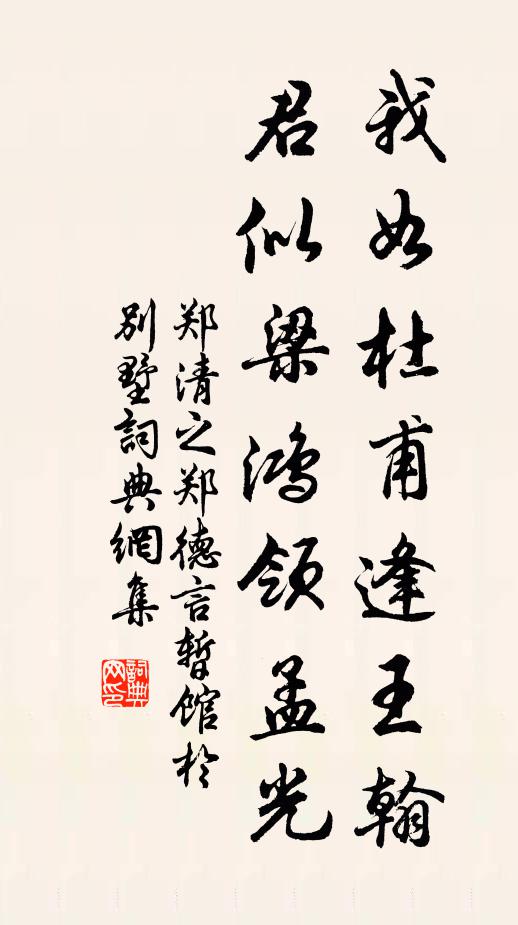 我如杜甫逢王翰
君似梁鸿领孟光
郑清之郑德言暂馆於
别墅詞典網集
詞典